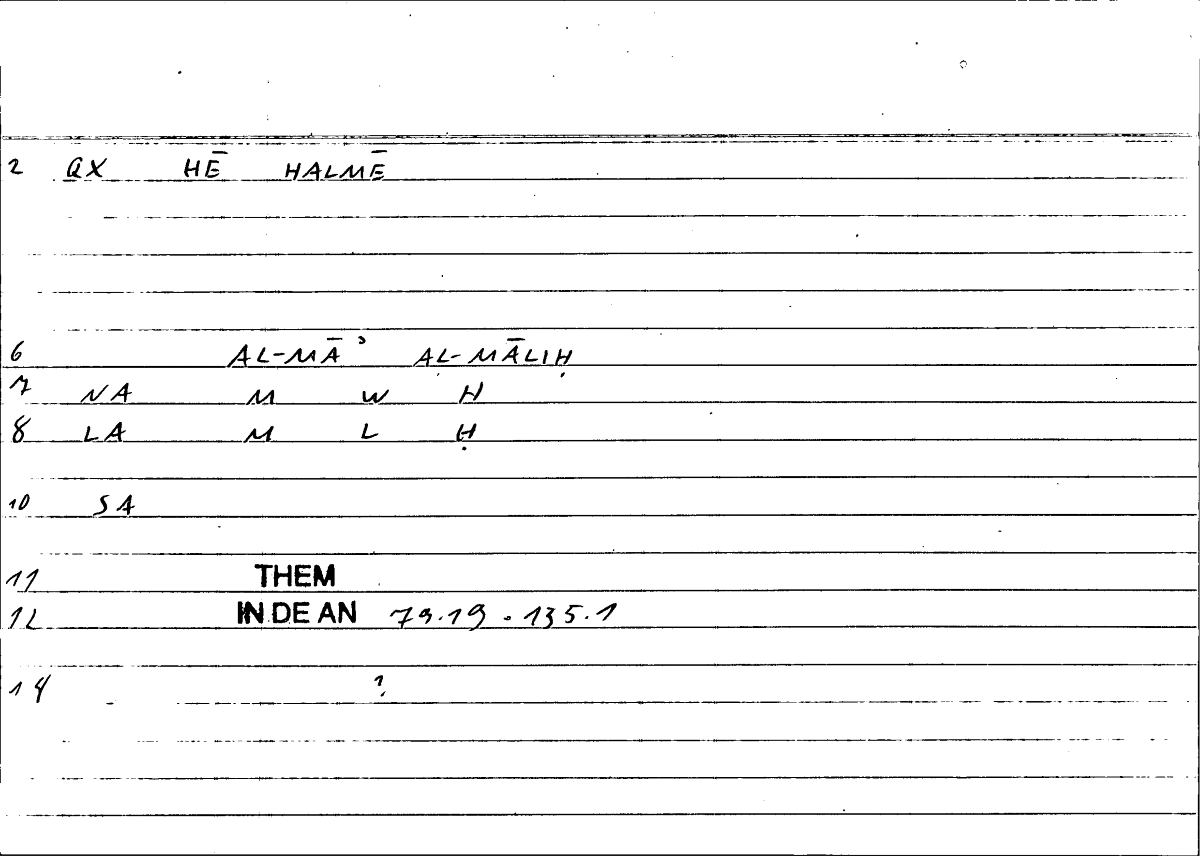 2 QX HĒ HALMĒ
6 AL-MĀʾ AL-MĀLIḤ
7 NA M W H
8 LA M L Ḥ
10 SA
11 THEM
12 IN DE AN 79.19.135.1
14 ?